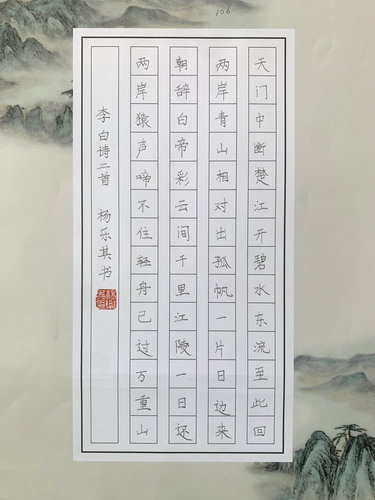 106
天门中断楚江开碧水东流至此回
两岸青山相对出孤帆一片日边来
朝辞白帝彩云间千里江陵一日还
两岸猿声啼不住轻舟已过万重山
李白诗二首 杨乐其书